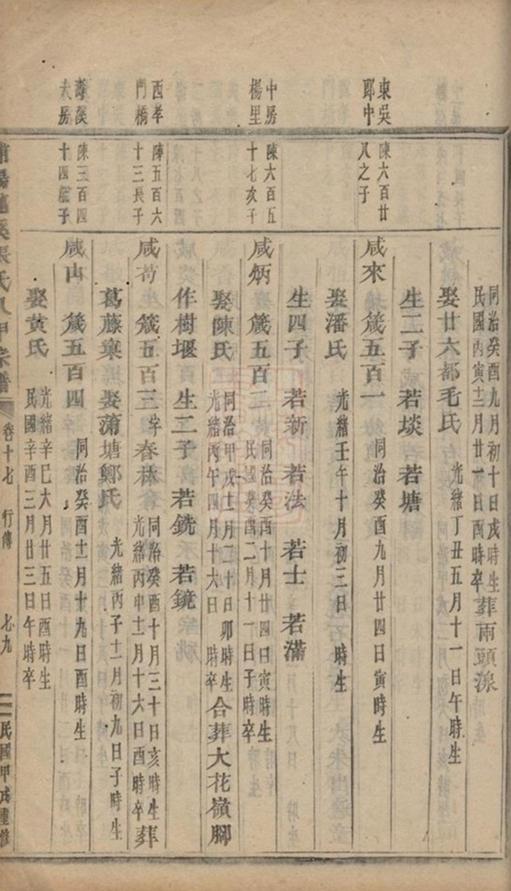 同治癸酉九月十日戌時生
民國丙寅十二月廿一日酉時卒
葬雨頭湶
娶廿六都毛氏
光緒丁丑五月十一日午時生
生二子 若埮 若塘
東吳郎中
陳六百廿八之子
咸來 箴五百一
同治癸酉九月廿四日寅時生
娶潘氏
光緒壬午十月初三日 時生
生四子 若新 若法 若士 若滿
中房楊里
陳六百五十七次子
咸炳 箴五百二
同治癸酉十月廿四日寅時生
民國癸酉二月十一日子時卒
娶陳氏
同治甲戌十二月三十日卯時生
光緒丙午四月十六日 時卒
合葬大花嶺腳
作樹堰 生二子 若銑 若鏡
西孝門橋
陣五百六十三長子
咸苟 箴五百三
字春林
同治癸酉十月三十日亥時生
光緒丙申十二月十六日酉時卒
葬
葛藤棄 娶蒲塘鄭氏
光緒丙子十二月初九日子時生
大房
陳三百四十四 子
咸山 箴五百四
同治癸酉十二月十九日酉時生
娶黃氏
光緒辛巳六月廿五日酉時生
民國辛酉三月廿三日午時卒
張氏八甲宗譜
卷十七 行傳
七九
民國甲戌重修